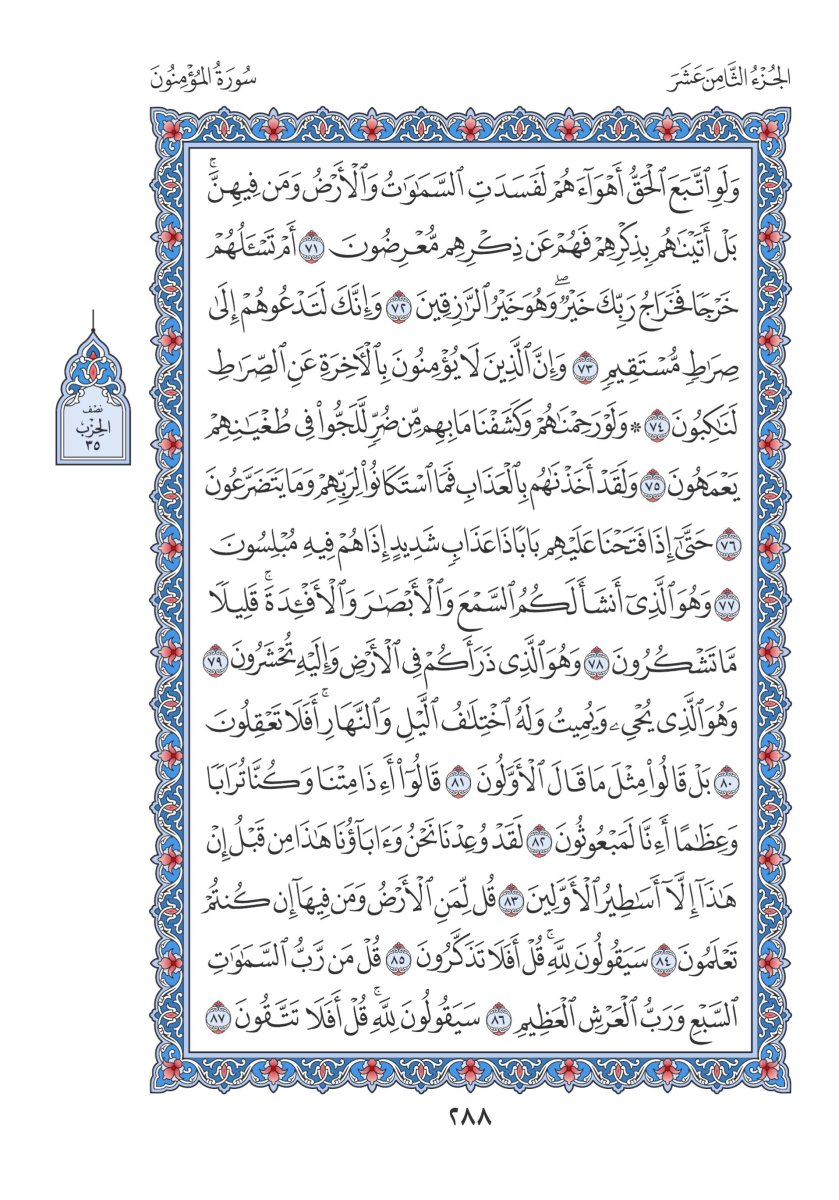 الجُزْءُ الثَّامِنَ عَشَرَ
سُورَةُ المُؤْمِنُونَ
وَلَوِ ٱتَّبَعَ ٱلْحَقُّ أَهْوَآءَهُمْ لَفَسَدَتِ ٱلسَّمَٰوَٰتُ وَٱلْأَرْضُ وَمَن فِيهِنَّۚ
بَلْ أَتَيْنَٰهُم بِذِكْرِهِمْ فَهُمْ عَن ذِكْرِهِم مُّعْرِضُونَ ٧١ أَمْ تَسْـَٔلُهُمْ
خَرْجًا فَخَرَاجُ رَبِّكَ خَيْرٌۖ وَهُوَ خَيْرُ ٱلرَّٰزِقِينَ ٧٢ وَإِنَّكَ لَتَدْعُوهُمْ إِلَىٰ
صِرَٰطٍ مُّسْتَقِيمٍ ٧٣ وَإِنَّ ٱلَّذِينَ لَا يُؤْمِنُونَ بِٱلْأٓخِرَةِ عَنِ ٱلصِّرَٰطِ
لَنَٰكِبُونَ ٧٤ * وَلَوْ رَحِمْنَٰهُمْ وَكَشَفْنَا مَا بِهِم مِّن ضُرٍّ لَّلَجُّوا۟ فِى طُغْيَٰنِهِمْ
يَعْمَهُونَ ٧٥ وَلَقَدْ أَخَذْنَٰهُم بِٱلْعَذَابِ فَمَا ٱسْتَكَانُوا۟ لِرَبِّهِمْ وَمَا يَتَضَرَّعُونَ
٧٦ حَتَّىٰٓ إِذَا فَتَحْنَا عَلَيْهِم بَابًا ذَا عَذَابٍ شَدِيدٍ إِذَا هُمْ فِيهِ مُبْلِسُونَ
٧٧ وَهُوَ ٱلَّذِىٓ أَنشَأَ لَكُمُ ٱلسَّمْعَ وَٱلْأَبْصَٰرَ وَٱلْأَفْـِٔدَةَۚ قَلِيلًا
مَّا تَشْكُرُونَ ٧٨ وَهُوَ ٱلَّذِى ذَرَأَكُمْ فِى ٱلْأَرْضِ وَإِلَيْهِ تُحْشَرُونَ ٧٩
وَهُوَ ٱلَّذِى يُحْىِۦ وَيُمِيتُ وَلَهُ ٱخْتِلَٰفُ ٱلَّيْلِ وَٱلنَّهَارِۚ أَفَلَا تَعْقِلُونَ
٨٠ بَلْ قَالُوا۟ مِثْلَ مَا قَالَ ٱلْأَوَّلُونَ ٨١ قَالُوٓا۟ أَءِذَا مِتْنَا وَكُنَّا تُرَابًا
وَعِظَٰمًا أَءِنَّا لَمَبْعُوثُونَ ٨٢ لَقَدْ وُعِدْنَا نَحْنُ وَءَابَآؤُنَا هَٰذَا مِن قَبْلُ إِنْ
هَٰذَآ إِلَّآ أَسَٰطِيرُ ٱلْأَوَّلِينَ ٨٣ قُل لِّمَنِ ٱلْأَرْضُ وَمَن فِيهَآ إِن كُنتُمْ
تَعْلَمُونَ ٨٤ سَيَقُولُونَ لِلَّهِۚ قُلْ أَفَلَا تَذَكَّرُونَ ٨٥ قُلْ مَن رَّبُّ ٱلسَّمَٰوَٰتِ
ٱلسَّبْعِ وَرَبُّ ٱلْعَرْشِ ٱلْعَظِيمِ ٨٦ سَيَقُولُونَ لِلَّهِۚ قُلْ أَفَلَا تَتَّقُونَ ٨٧
نصْف
الحِزْب
٣٥
٢٨٨